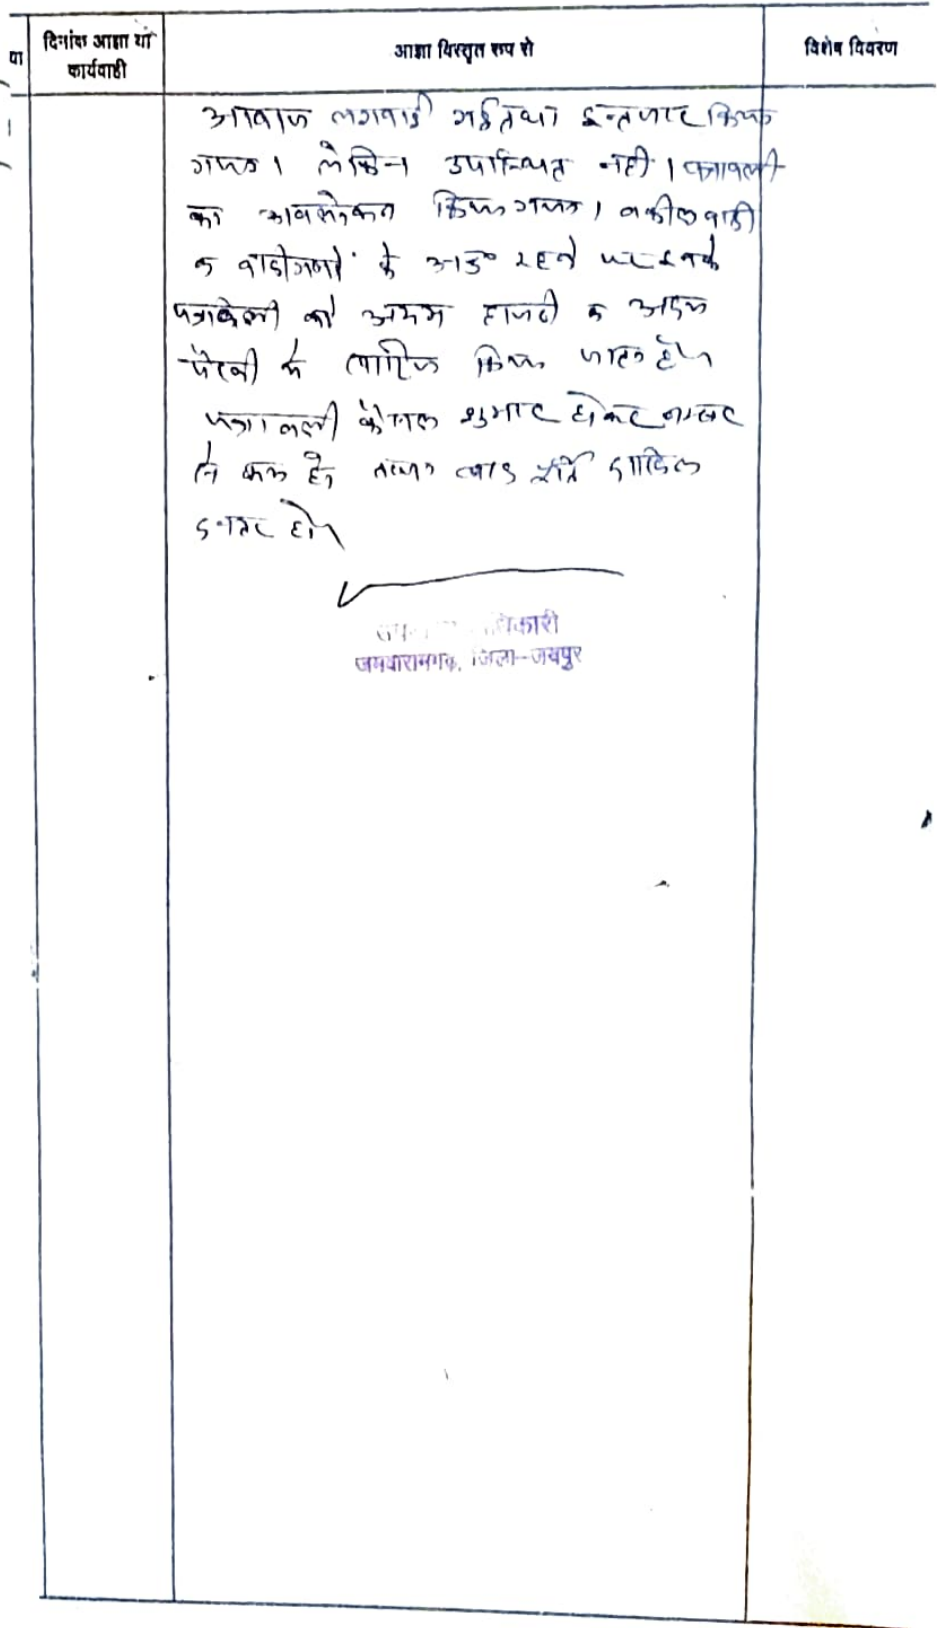 या
दिनांक आज्ञा या
कार्यवाही
आज्ञा विस्तृत रूप से
विशेष विवरण
आवाज लगवाई गई तथा इन्तजार किया
गया। लेकिन उपस्थित नहीं। पत्रावली
का अवलोकन किया गया। वकील वादी
व वादीगणों के रहने पर
पत्रावली को अदम हाजरी व अदम
पैरवी में खारिज किया जाता है।
पत्रावली फैसल शुमार होकर नम्बर
से कम हो दाखिल
दफ्तर हो।
अधिकारी
जमवारामगढ़, जिला-जयपुर